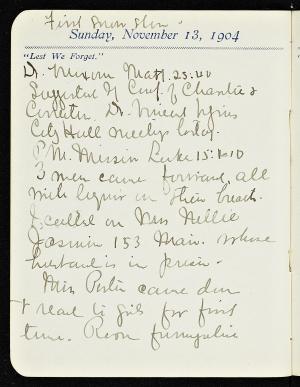 First Snow Storm.
Sunday, November 13, 1904
"Lest We Forget."
Dr. Matt. 25:40
Suggested of Conf. of Charities &
Dr. Vincent
City Hall meetings today.
P.M. Mission Luke 15:1-10
3 men came forward, all
with liquor in their breath.
I called on Mrs Nellie
Jasmin 153 Main. whose
husband is in prison.
Miss came down
& read to girls for first
time. Room